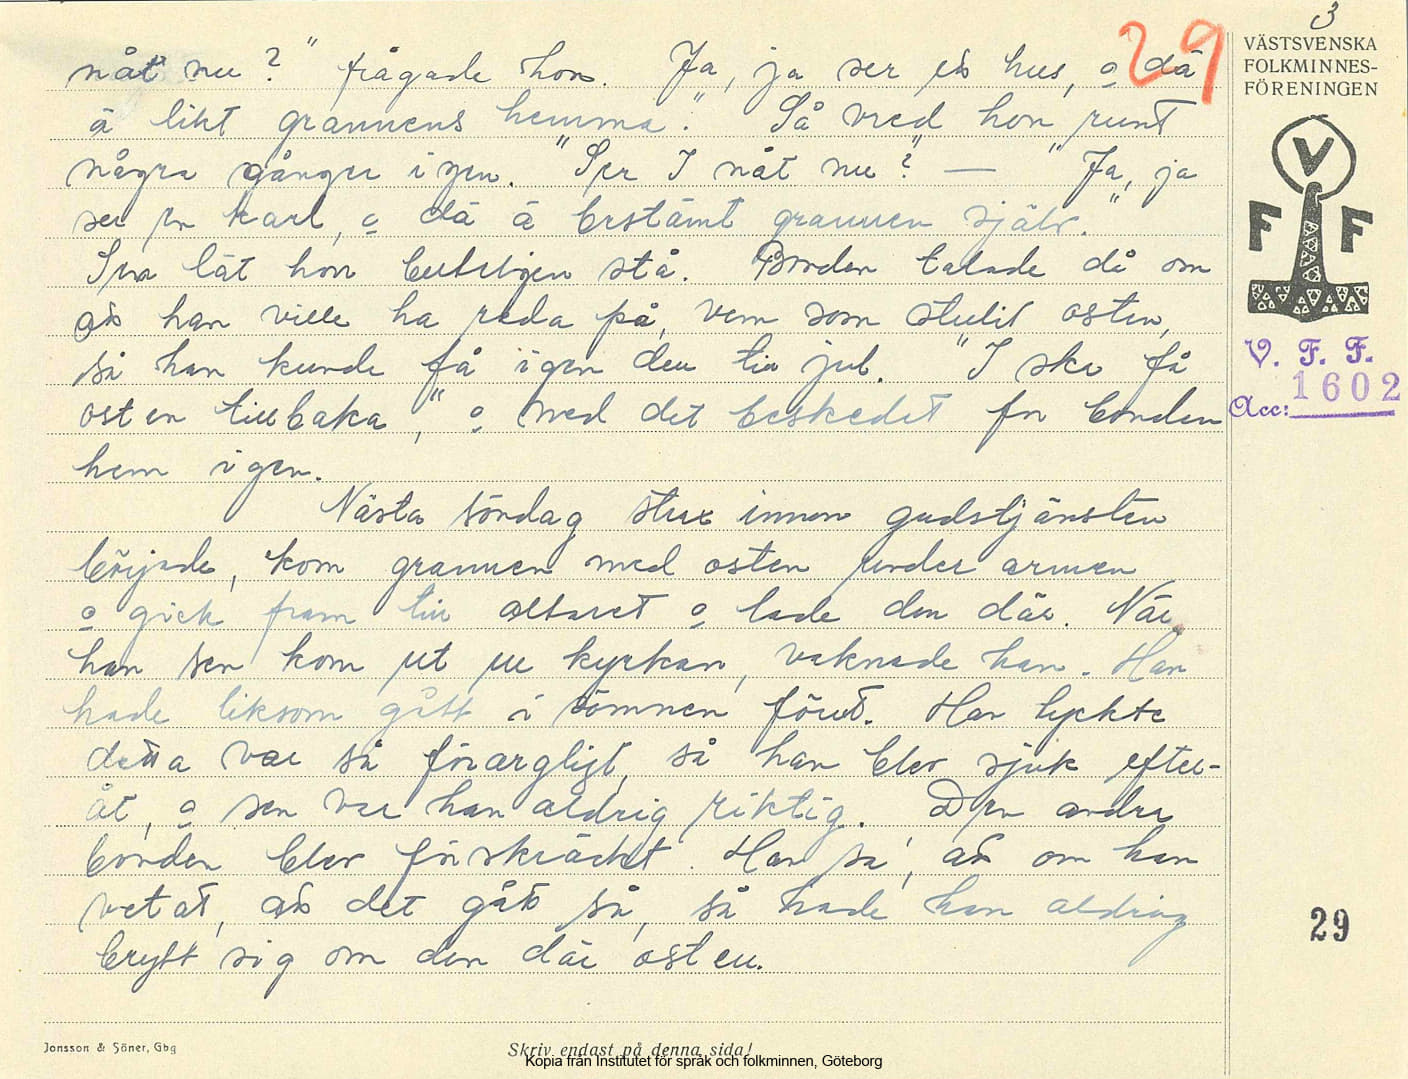 3
29
VÄSTSVENSKA
FOLKMINNES-
FÖRENINGEN
V
F F
V. F. F.
Acc: 1602
nåt nu?" frågade hon. Ja, ja ser ett hus, o dä
ä likt grannens hemma." Så vred hon runt
några gånger igen. "Ser I nåt nu?" — "Ja, ja
ser en karl, o dä ä bestämt grannen själv."
Sen lät hon buteljen stå. Bonden talade då om
att han ville ha reda på, vem som stulit osten,
så han kunde få igen den till jul. "I ska få
osten tillbaka," o med det beskedet for bonden
hem igen.
Nästa söndag strax innan gudstjänsten
började, kom grannen med osten under armen
o gick fram till altaret o lade den där. När
han sen kom ut ur kyrkan, vaknade han. Han
hade liksom gått i sömnen förut. Han tyckte
detta var så förargligt, så han blev sjuk efter-
åt, o sen var han aldrig riktig. Den andre
bonden blev förskräckt. Han sa, att om han
vetat, att det gått så, så hade han aldrig
brytt sig om den där osten.
29
Jonsson & Söner, Gbg
Skriv endast på denna sida!
Kopia från Institutet för språk och folkminnen, Göteborg